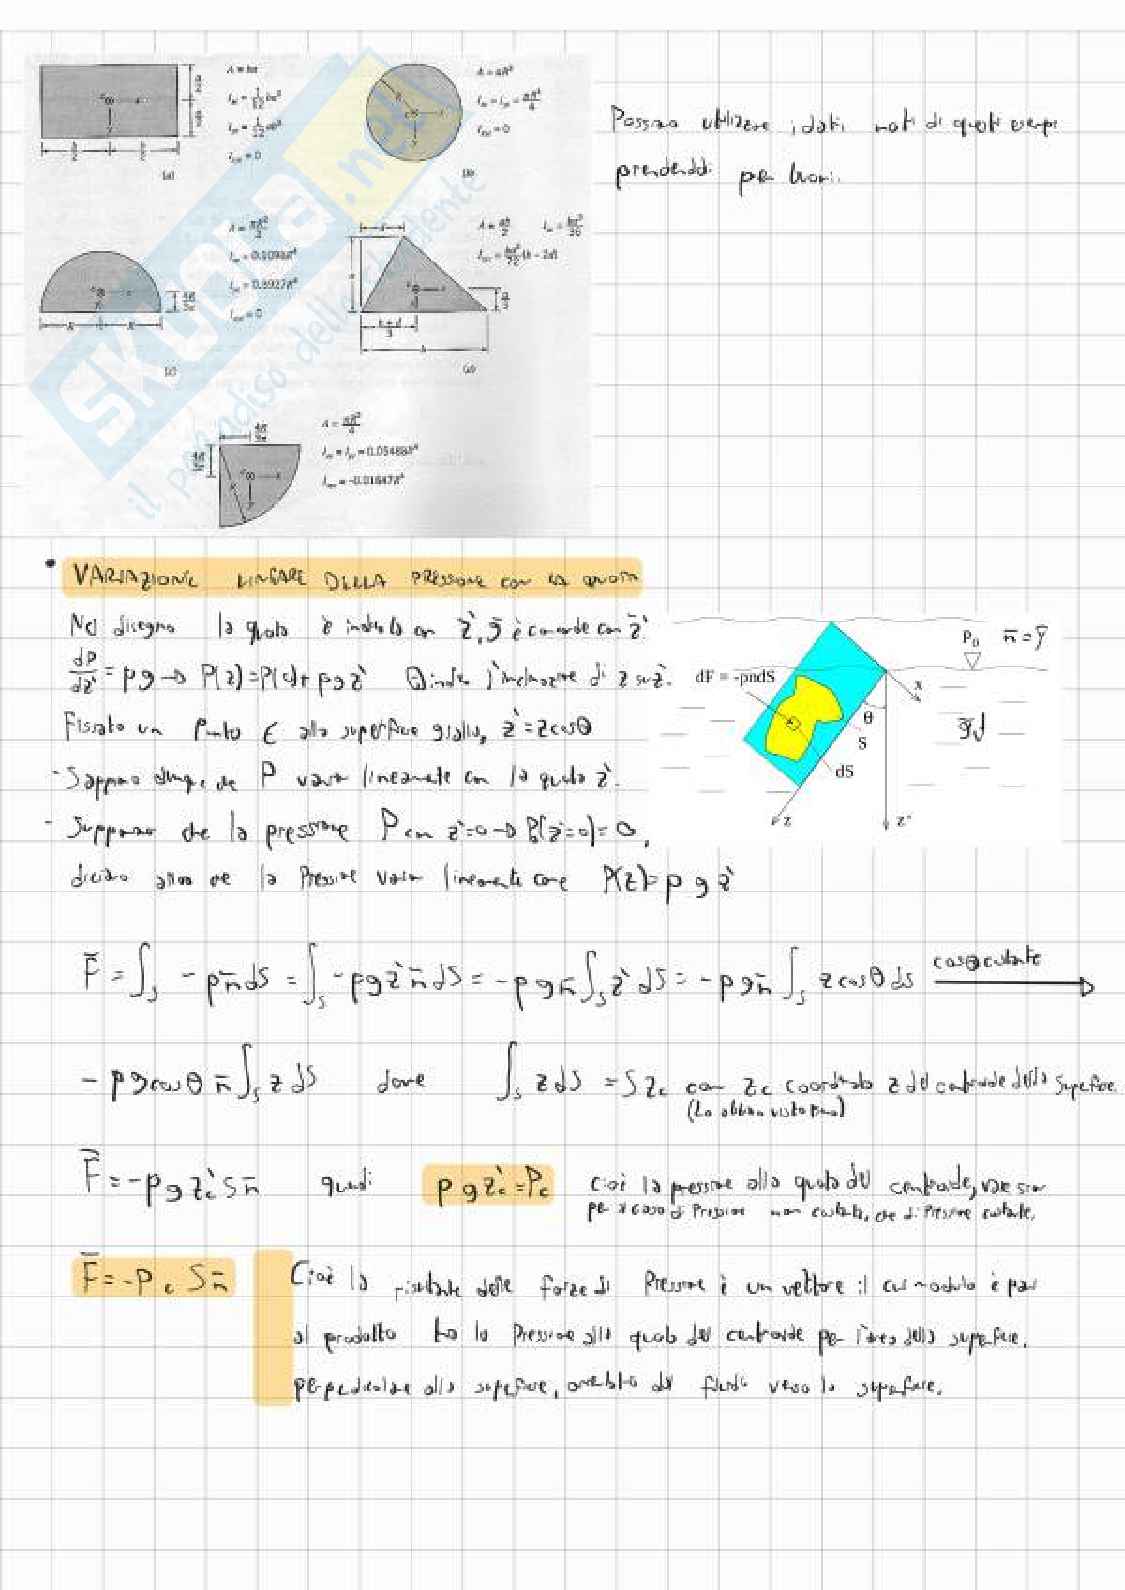 A = ba
I_xc = 1/12 ba³
I_yc = 1/12 ab³
I_xyc = 0
(a)
A = πR²
I_xc = I_yc = πR⁴/4
I_xyc = 0
(b)
Possiamo utilizzare i dati noti di questi esempi
prendendoli per buoni.
A = πR²/2
I_xc = 0.1098R⁴
I_yc = 0.3927R⁴
I_xyc = 0
4R/3π
R R
(c)
A = ab/2 I_xc = ba³/36
I_xyc = ba²/72 (b - 2d)
b + d/3
(d)
A = πR²/4
I_xc = I_yc = 0.05488R⁴
I_xyc = -0.01647R⁴
4R/3π
SKUOLA.net
il paradiso dello studente
• VARIAZIONE LINEARE DELLA PRESSIONE CON LA QUOTA
Nel disegno la quota è indicata con z', g è concorde con z'.
dP/dz' = ρg → P(z) = P(0) + ρgz' Θ indica l'inclinazione di z su z'.
Fissato un punto ∈ alla superficie gialla, z' = z cosθ
- Sappiamo dunque che P varia linearmente con la quota z'.
- Supponiamo che la pressione P con z'=0 → P(z'=0) = 0,
diciamo allora che la Pressione varia linearmente come P(z) = ρgz'
P₀ n̄ = ȳ
dF = -pndS
x
θ
S
ḡ
dS
z z'
F̄ = ∫_S - p n̄ dS = ∫_S - ρgz' n̄ dS = - ρg n̄ ∫_S z' dS = - ρg n̄ ∫_S z cosθ dS cosθ costante →
- ρg cosθ n̄ ∫_S z dS dove ∫_S z dS = S z_c con z_c coordinata z del centroide della superficie.
(Lo abbiamo visto prima)
F̄ = - ρg z'_c S n̄ quindi ρg z'_c = P_c cioè la pressione alla quota del centroide, vale sia
per il caso di Pressione non costante, che di Pressione costante.
F̄ = - P_c S n̄ Cioè la risultante delle forze di Pressione è un vettore il cui modulo è pari
al prodotto tra la Pressione alla quota del centroide per l'area della superficie.
perpendicolare alla superficie, orientato dal fluido verso la superficie.